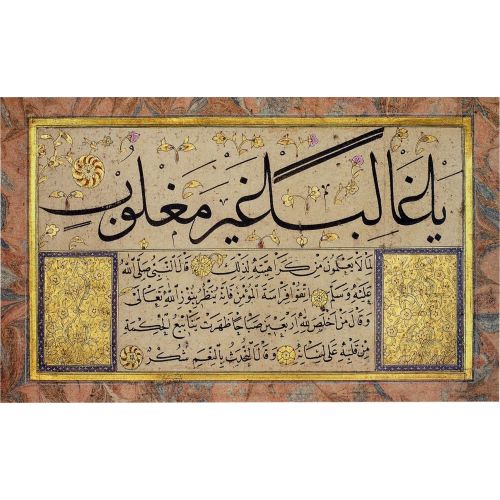 يا غالبا غير مغلوب
لما لا يعلمون من كراهيته لذلك قال النبي صلى الله
عليه وسلم اتقوا فراسة المؤمن فانه ينظر بنور الله تعالى
وقال من اخلص لله اربعين صباحا ظهرت ينابيع الحكمة
من قلبه على لسانه وقال التحدث بالنعم شكر